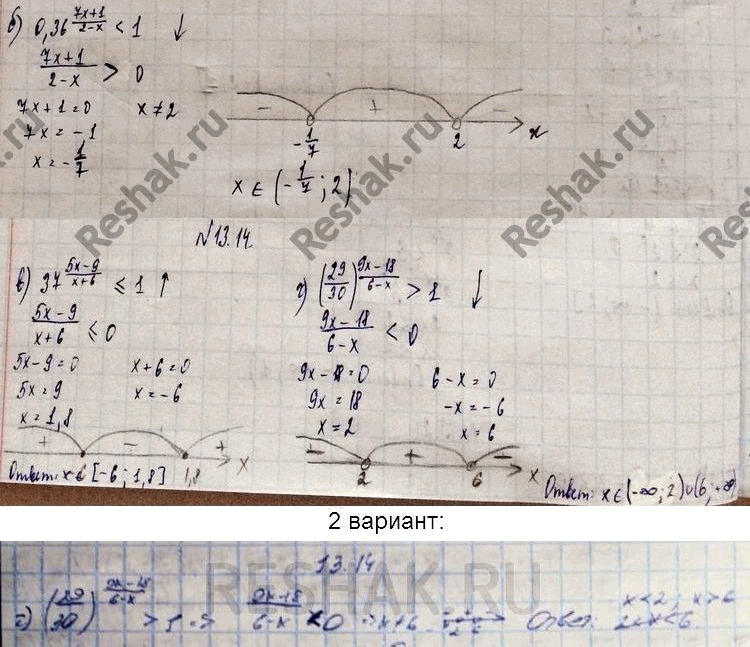 б) 0,36^((7x+1)/(2-x)) < 1 ↓
(7x+1)/(2-x) > 0
7x+1=0 x≠2
7x = -1
x = -1/7
- + -
-1/7 2 x
x ∈ (-1/7; 2)
Reshak.ru
№13.14.
в) 37^((5x-9)/(x+6)) ≤ 1 ↑
(5x-9)/(x+6) ≤ 0
5x-9=0 x+6=0
5x=9 x=-6
x=1,8
+ - +
1,8 x
Ответ: x ∈ [-6; 1,8]
г) (29/30)^((9x-18)/(6-x)) > 1 ↓
(9x-18)/(6-x) < 0
9x-18=0 6-x=0
9x=18 -x=-6
x=2 x=6
- + -
2 6 x
Ответ: x∈(-∞;2)∪(6;+∞)
2 вариант:
RESHAK.RU
13.14
г) (29/30)^((9x-18)/(6-x)) > 1 => (9x-18)/(6-x) < 0 x≠6 2 6 Ответ: x<2; x>6